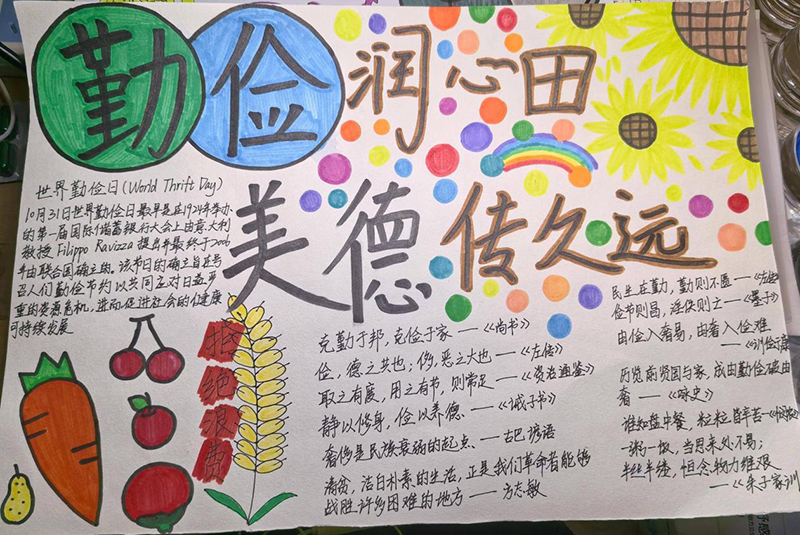 勤俭润心田
美德传久远
世界勤俭日(World Thrift Day)
10月31日世界勤俭日最早是在1924年举办
的第一届国际储蓄银行大会上由意大利
教授 Filippo Ravizza 提出并最终于2006
年由联合国确立的。该节日的确立旨在号
召人们勤俭节约以共同应对日益严
重的资源危机，进而促进社会的健康
可持续发展
拒
绝
浪
费
克勤于邦，克俭于家——《尚书》
俭，德之共也；侈，恶之大也——《左传》
取之有度，用之有节，则常足——《资治通鉴》
静以修身，俭以养德——《诫子书》
奢侈是民族衰弱的起点——古巴谚语
清贫，洁白朴素的生活，正是我们革命者能够
战胜许多困难的地方——方志敏
民生在勤，勤则不匮——《左传》
俭节则昌，淫佚则亡——《墨子》
由俭入奢易，由奢入俭难
历览前贤国与家，成由勤俭破由
奢——《咏史》
谁知盘中餐，粒粒皆辛苦
一粥一饭，当思来处不易；
半丝半缕，恒念物力维艰
——《朱子家训